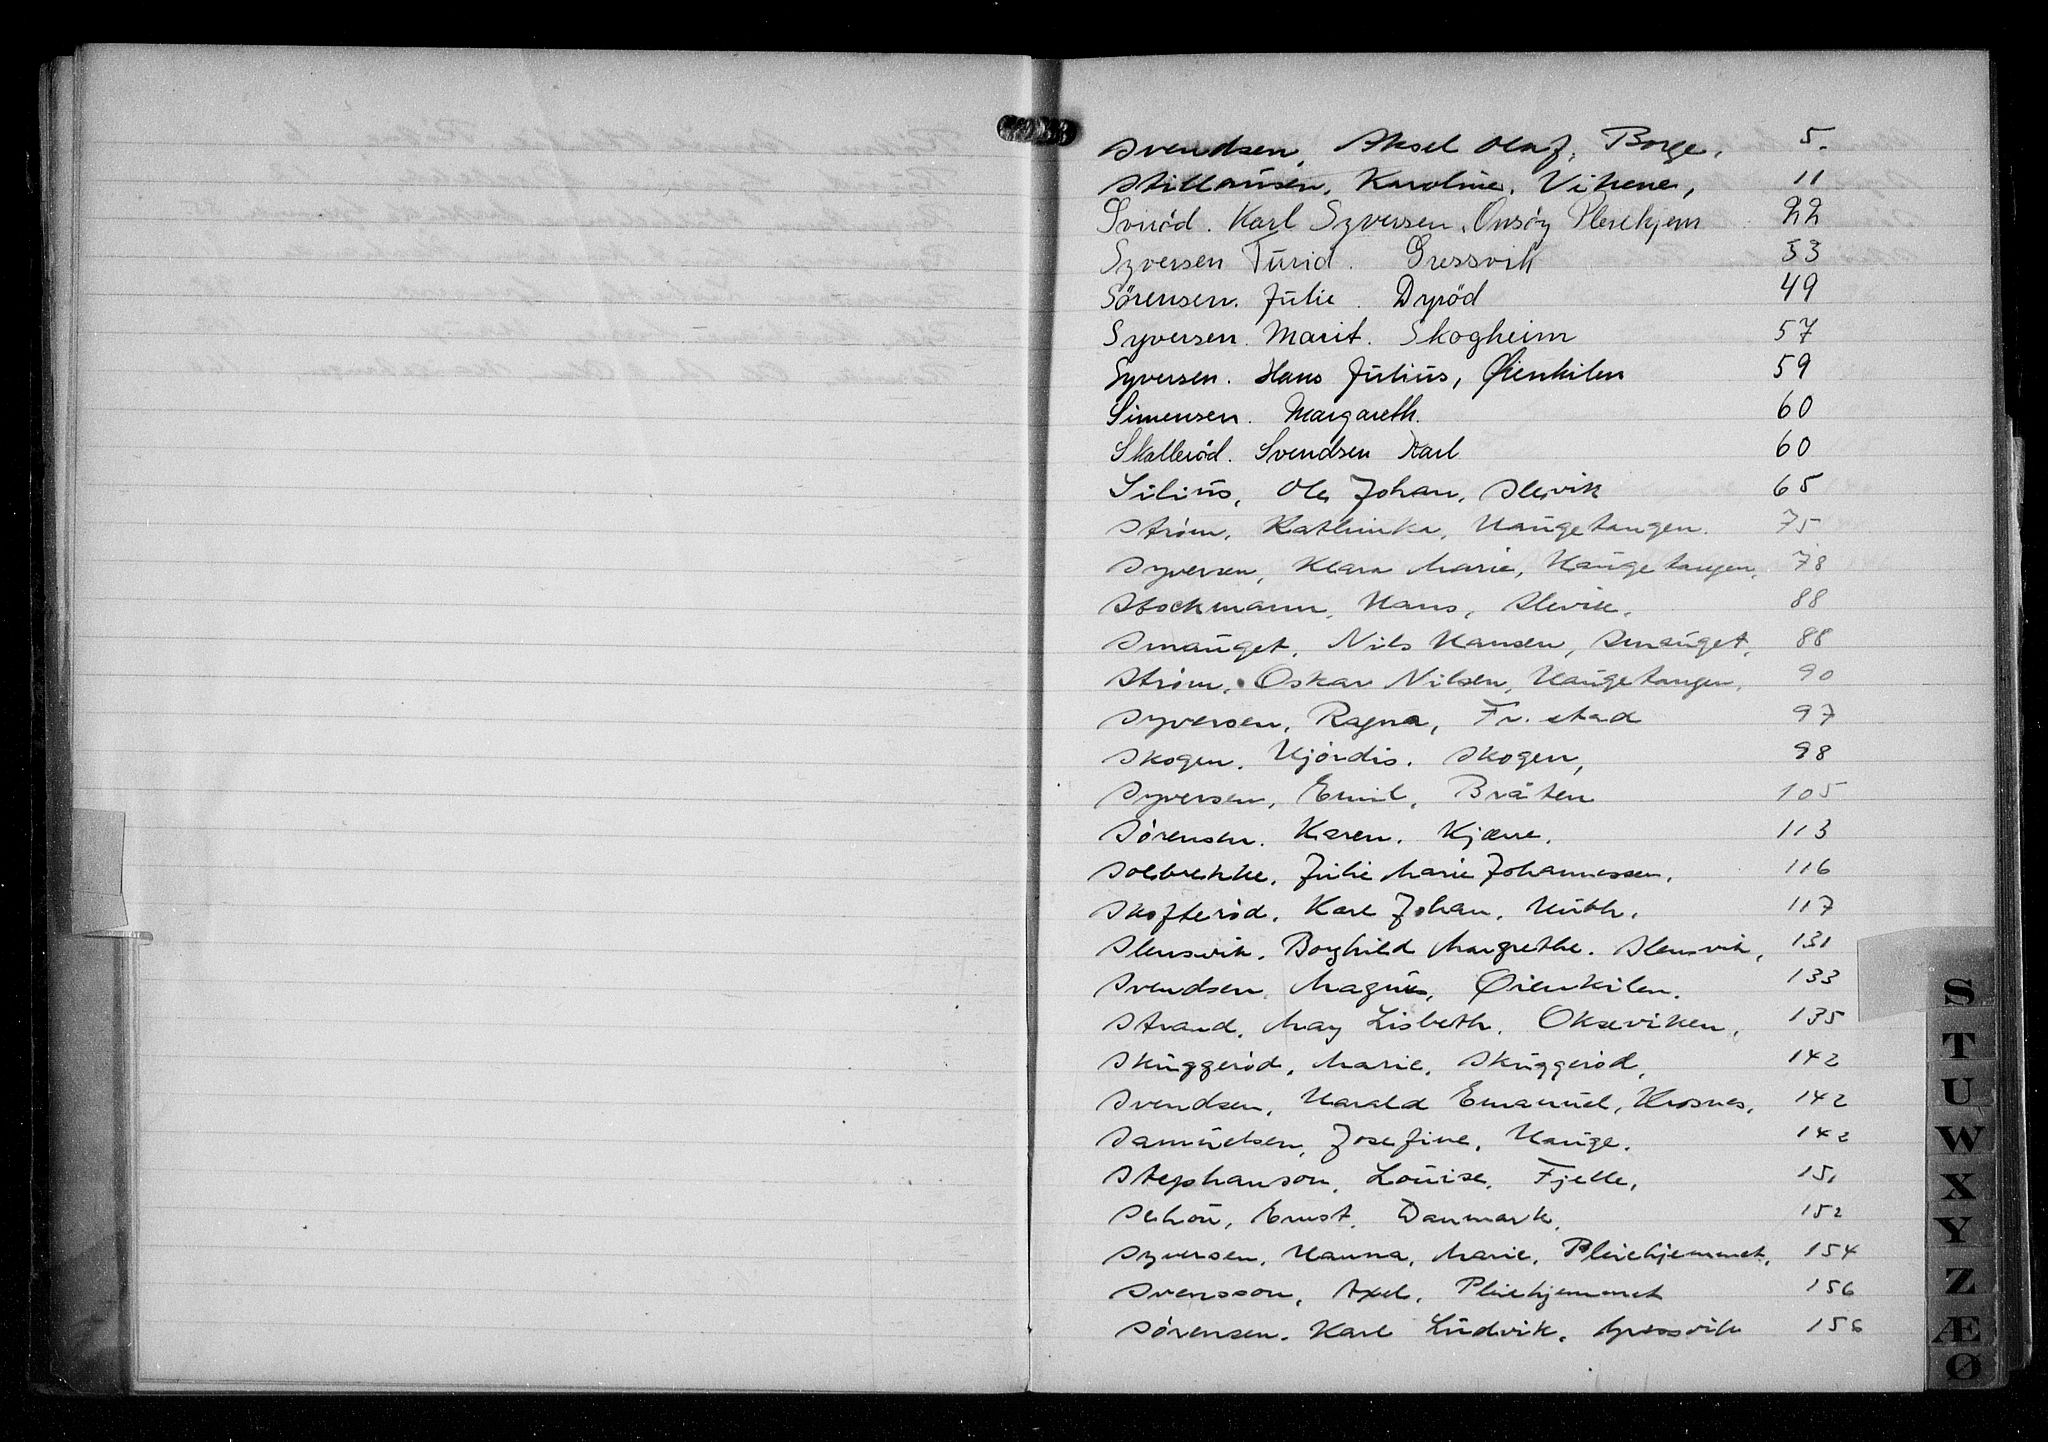 Svendsen, Aksel Olaf, Borge, 5.
Stillausen, Karoline, Vikene, 11
Karl Syversen, Onsöy Pleiehjem 22
Syversen Turid. Gressvik 53
Sörensen. Julie. Dyröd 49
Syversen. Marit. Skogheim 57
Syversen. Hans Julius, Øienkilen 59
Simensen. Margareth. 60
Skalleröd. Svendsen Karl 60
Silius, Ole Johan, Slevik 65
Strøm, Kathinka, Haugetangen. 75
Syversen, Klara Marie, Haugetangen. 78
Stockmann, Hans, Slevik. 88
Smauget, Nils Hansen, Smauget. 88
Strøm, Oskar Nilsen, Haugetangen. 90
Syversen, Ragna, Fr.stad 97
Skogen. Hjørdis. Skogen, 98
Syversen, Emil, Bråten 105
Sørensen. Karen. Kjære. 113
Solbrekke, Julie Marie Johannessen. 116
Skofterød, Karl Johan, Huth. 117
Slensvik. Borghild Margrethe. Slensvik, 131
Svendsen, Magnus, Øienkilen. 133
Strand, May Lisbeth. Okseviken, 135
Skuggerød, Marie, Skuggerød, 142
Svendsen, Harald Emanuel, Krosnes, 142
Samuelsen, Josefine, Hauge. 142
Stephanson, Louise, Fjelle, 151
Schou, Ernst, Danmark, 152
Syversen, Hanna, Marie, Pleiehjemmet, 154
Svensson, Axel, Pleiehjemmet 156
Sørensen. Karl Ludvik, Gressvik 156
S
T
U
W
X
Y
Z
Æ
Ø